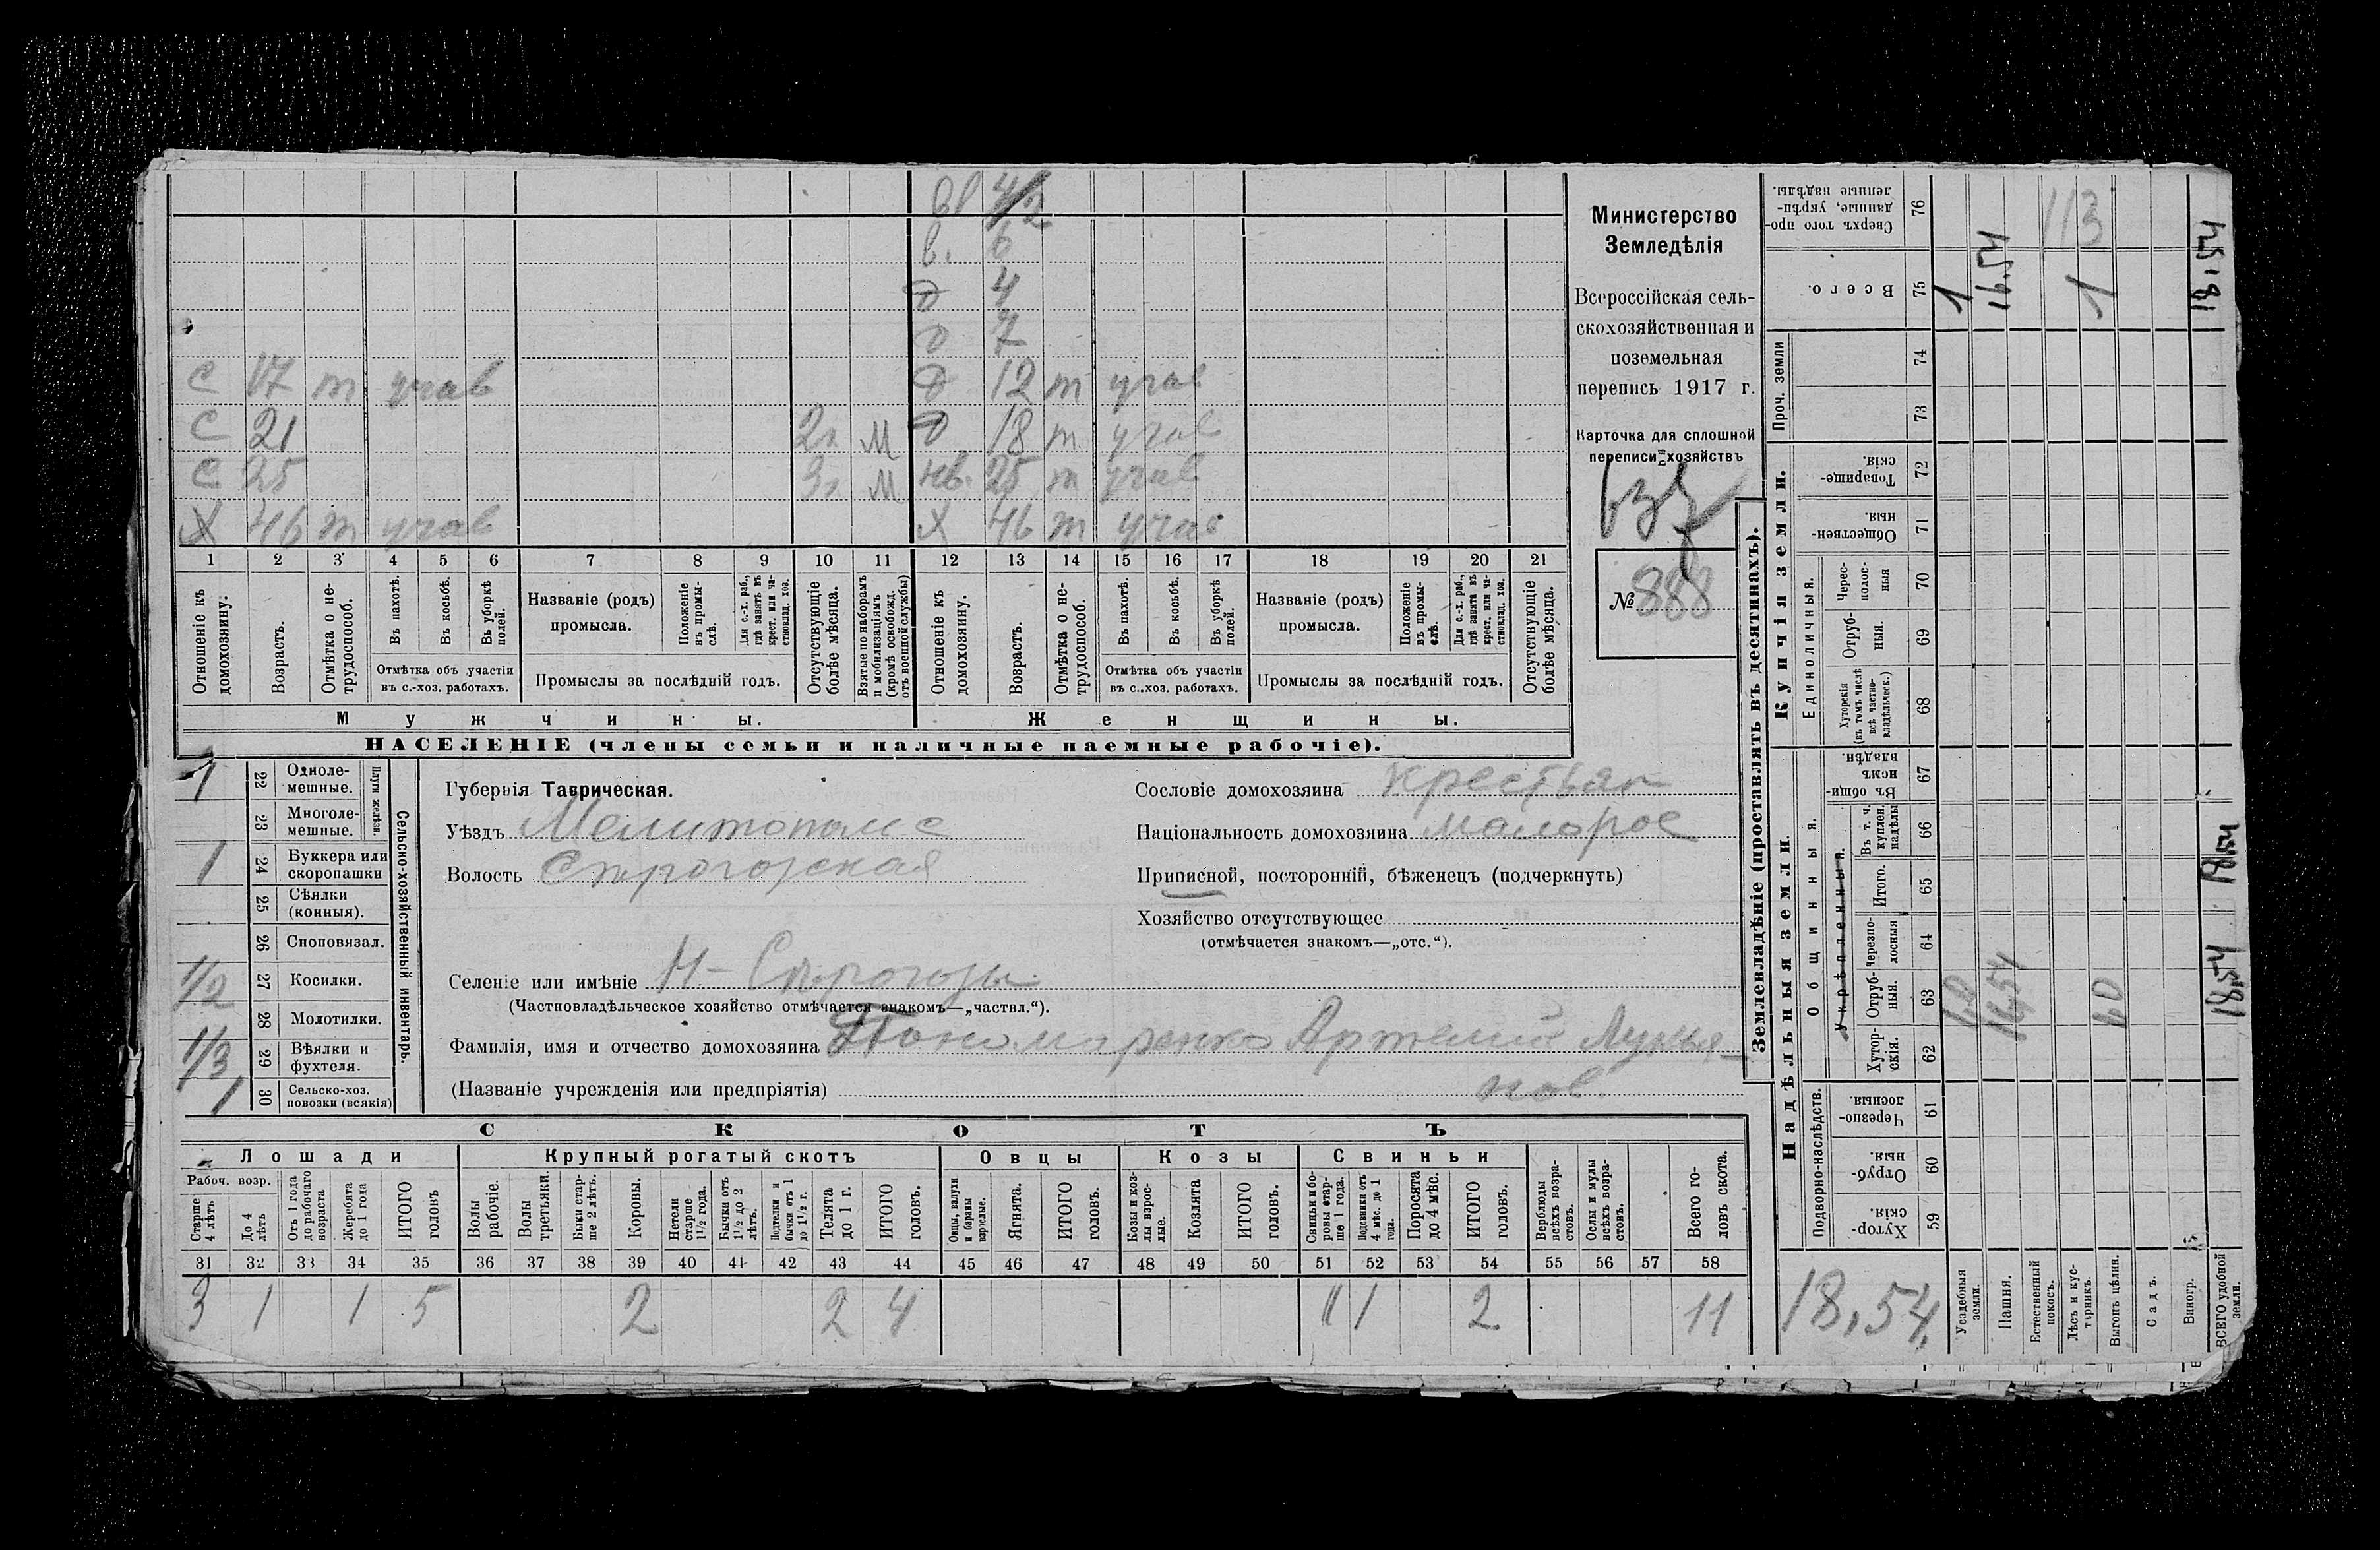 вв 4/2
в. 6
д 4
д 7
с 17 т учав д 12 т учав
с 21 2 г. м д 18 т учав
с 25 3 г. м нв. 25 т учав
х 46 т учав х 46 т учав
1 2 3 4 5 6 7 8 9 10 11 12 13 14 15 16 17 18 19 20 21
Отношеніе къ домохозяину:
Возрастъ.
Отмѣтка о нетрудоспособ.
Въ пахотѣ.
Въ косьбѣ.
Въ уборкѣ полей.
Отмѣтка объ участіи въ с.-хоз. работахъ.
Названіе (родъ) промысла.
Положеніе въ промыслѣ.
Для с.-х. раб., гдѣ занятъ въ крест. или частновлад. хоз.
Промыслы за послѣдній годъ.
Отсутствующіе болѣе мѣсяца.
Взятые по наборамъ и мобилизаціямъ (кромѣ освобожд. отъ военной службы)
Отношеніе къ домохозяину.
Возрастъ.
Отмѣтка о нетрудоспособ.
Въ пахотѣ.
Въ косьбѣ.
Въ уборкѣ полей.
Отмѣтка объ участіи въ с..хоз. работахъ.
Названіе (родъ) промысла.
Положеніе въ промыслѣ.
Для с.-х. раб., гдѣ занята въ крест. или частновлад. хоз.
Промыслы за послѣдній годъ.
Отсутствующіе болѣе мѣсяца.
Мужчины. Женщины.
НАСЕЛЕНІЕ (члены семьи и наличные наемные рабочіе).
Министерство
Земледѣлія
Всероссійская сель-
скохозяйственная и
поземельная
перепись 1917 г.
Карточка для сплошной
переписи хозяйствъ
№ 888
1 22 Одноле-мешные.
23 Многоле-мешные.
Плуги желѣзн.
1 24 Буккера или скоропашки
25 Сѣялки (конныя).
26 Сноповязал.
1/2 27 Косилки.
28 Молотилки.
1/3 29 Вѣялки и фухтеля.
1 30 Сельско-хоз. повозки (всякія)
Сельско-хозяйственный инвентарь.
Губернія Таврическая.
Уѣздъ Мелитопольс
Волость Сірогозская
Селеніе или имѣніе Н-Сірогозы
(Частновладѣльческое хозяйство отмѣчается знакомъ—„частвл.“).
Фамилія, имя и отчество домохозяина Пономаренко Артемий Лукья-
(Названіе учрежденія или предпріятія) нов.
Сословіе домохозяина крестьян
Національность домохозяина малорос
Приписной, посторонній, бѣженецъ (подчеркнуть)
Хозяйство отсутствующее
(отмѣчается знакомъ—„отс.“).
СКОТЪ
Лошади Крупный рогатый скотъ Овцы Козы Свиньи
Рабоч. возр.
Старше 4 лѣтъ
До 4 лѣтъ
Отъ 1 года до рабочаго возраста
Жеребята до 1 года
ИТОГО головъ
Волы рабочіе.
Волы третьяки.
Быки старше 2 лѣтъ.
Коровы.
Нетели старше 1½ года.
Бычки отъ 1½ до 2 лѣтъ.
Подтелки и бычки отъ 1 до 1½ г.
Телята до 1 г.
ИТОГО головъ.
Овцы, валухи и бараны взрослые.
Ягнята.
ИТОГО головъ.
Козы и козлы взрослые.
Козлята
ИТОГО головъ.
Свиньи и боровы старше 1 года.
Подсвинки отъ 4 мѣс. до 1 года.
Поросята до 4 мѣс.
ИТОГО головъ.
Верблюды всѣхъ возрастовъ.
Ослы и мулы всѣхъ возрастовъ.
Всего головъ скота.
31 32 33 34 35 36 37 38 39 40 41 42 43 44 45 46 47 48 49 50 51 52 53 54 55 56 57 58
3 1 1 5 2 2 4 1 1 2 11
Землевладѣніе (проставлять въ десятинахъ).
Надѣльныя земли. Купчія земли.
Подворно-наслѣдств. Общинныя. Единоличныя. Проч. земли
Укрѣпленныя.
Хутор-скія. 59
Отруб-ныя. 60
Черезпо-лосныя. 61
Хутор-скія. 62
Отруб-ныя. 63
Черезпо-лосныя 64
Итого. 65
Въ т. ч. куплен. надѣлы 66
Въ общинномъ владѣн. 67
Хуторскія (въ томъ числѣ всѣ частновладѣльческ.) 68
Отруб-ныя. 69
Черес-полос-ныя 70
Обществен-ныя. 71
Товарище-скія. 72
73
74
Всего. 75
Сверхъ того проданные, укрѣпленные надѣлы. 76
Усадебныя земли. 1,0 1
Пашня. 16,54 16.54
Естественный покосъ.
Лѣсъ и кустарникъ. 113
Выгонъ цѣлин. 1,0 1
Садъ.
Виногр.
ВСЕГО удобной земли. 18,54 18,54 18,54
18,54.